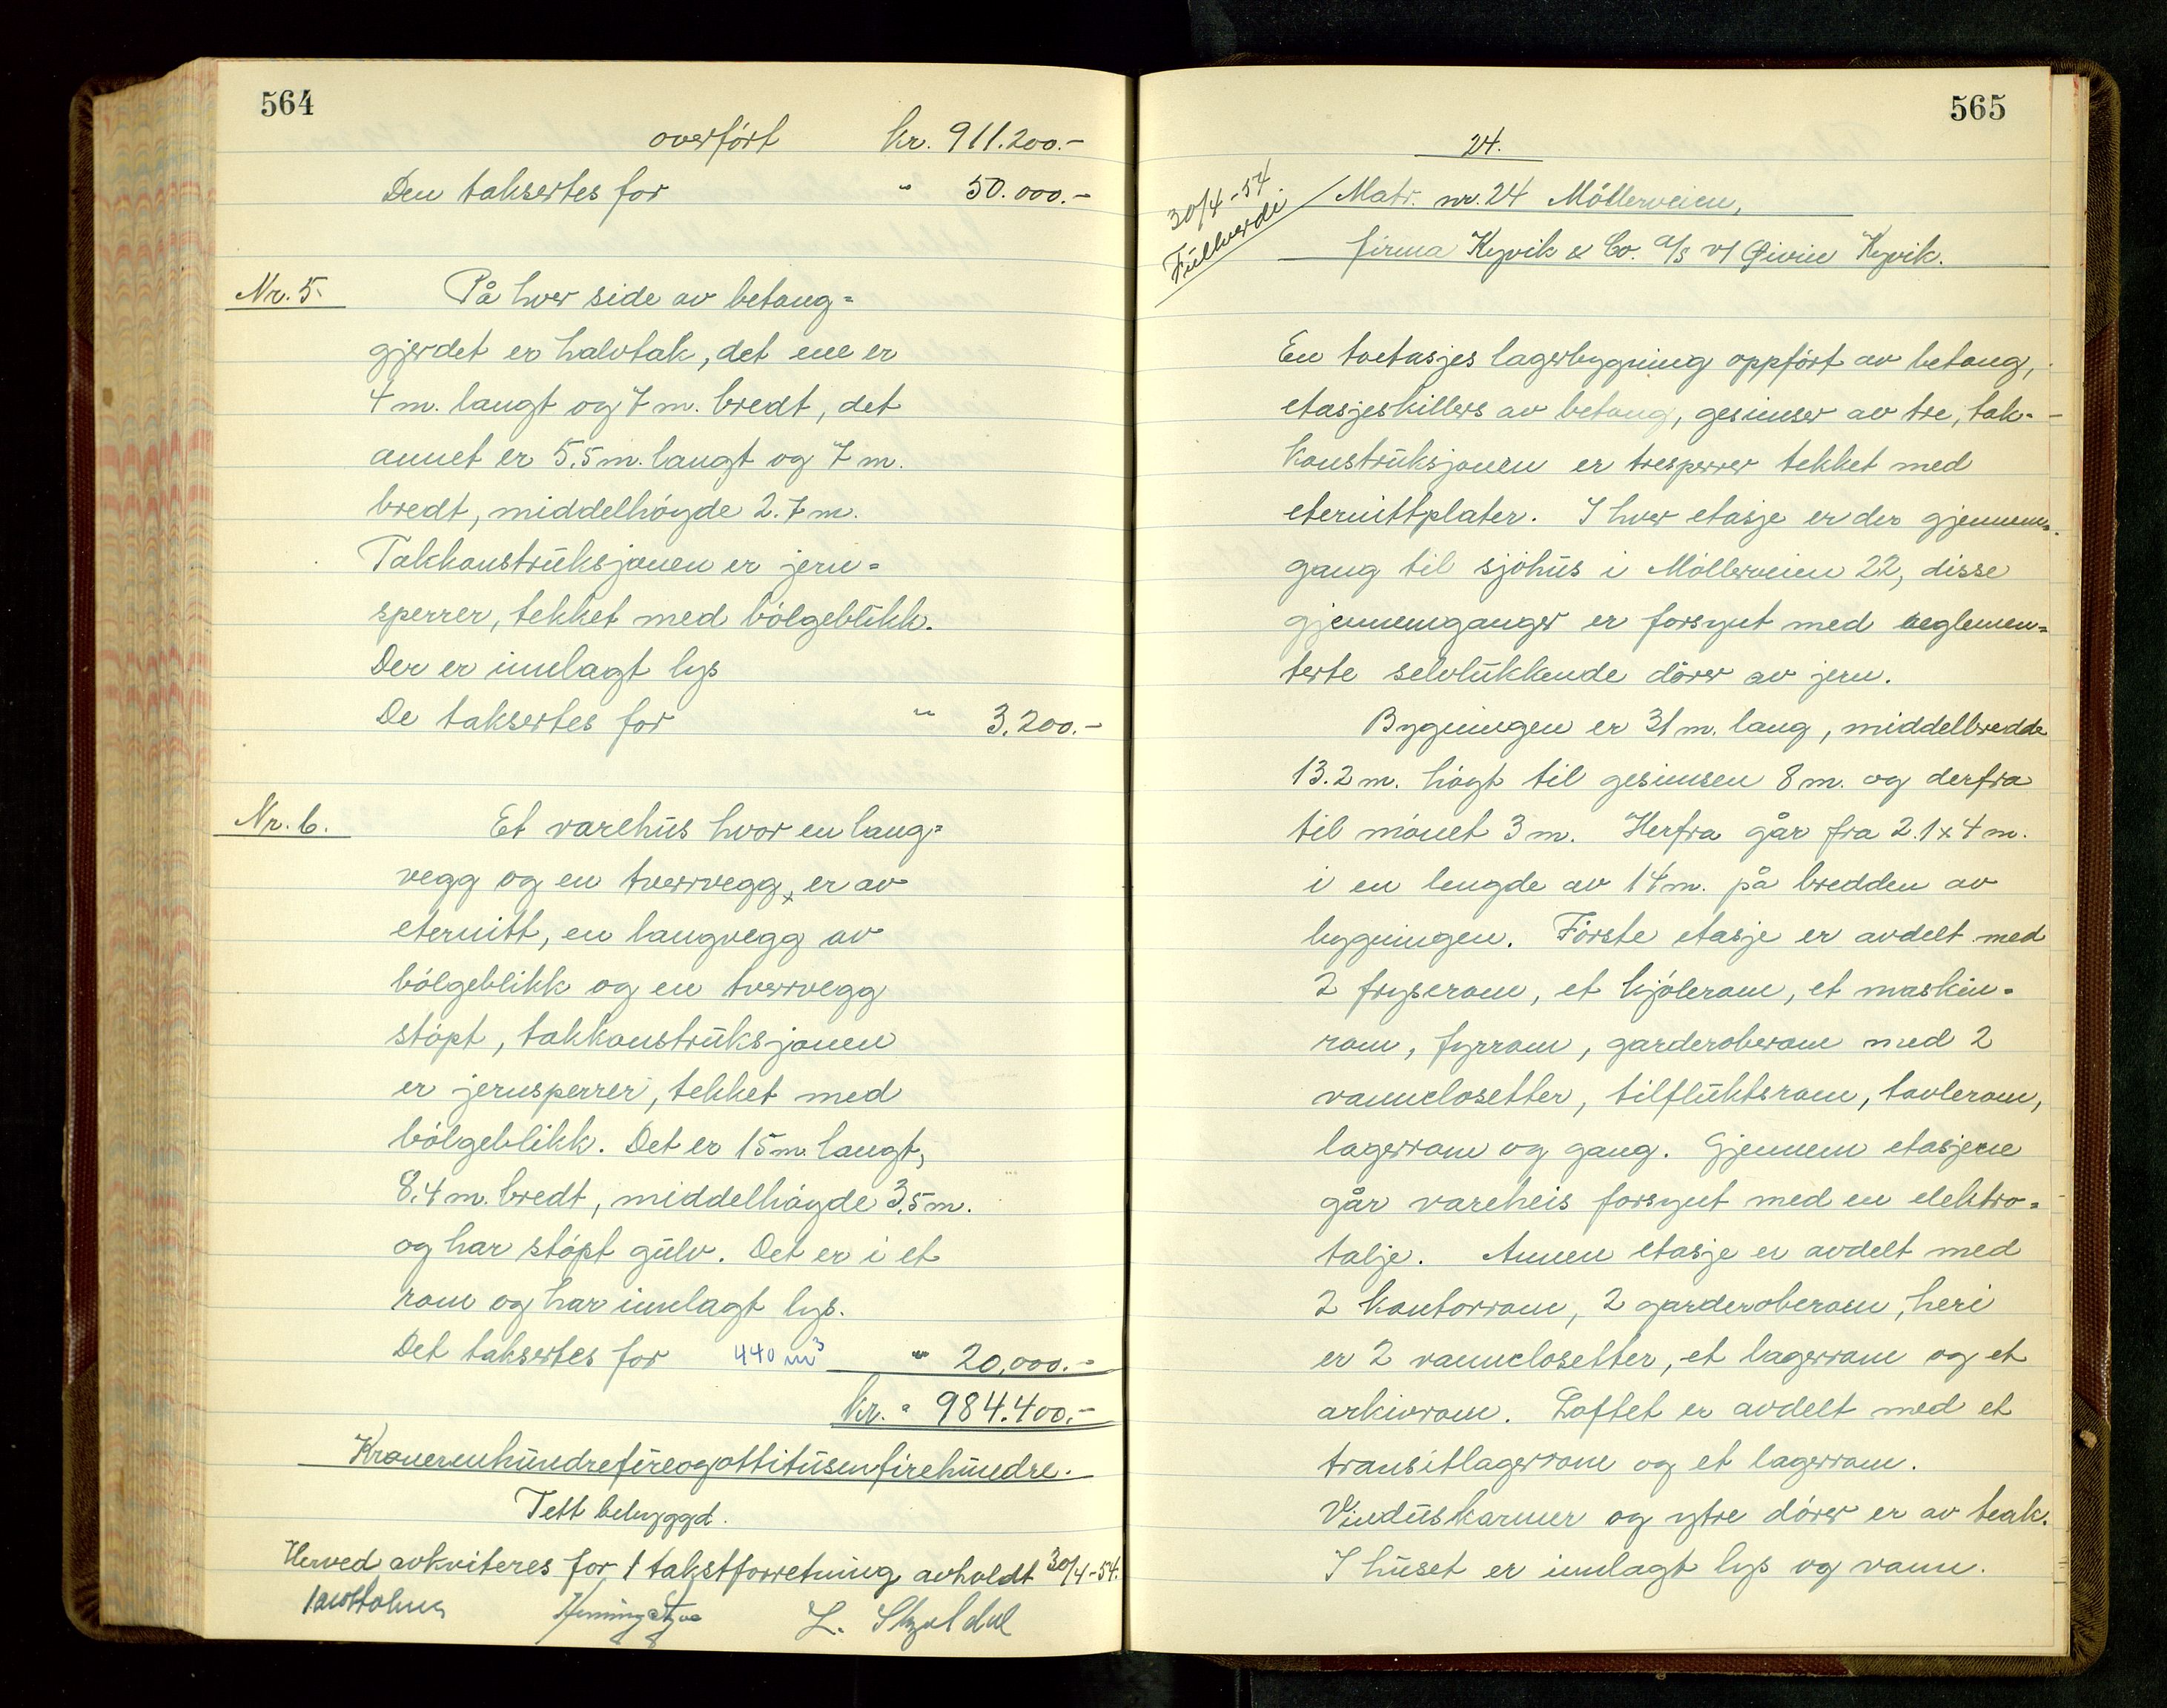 564
overført kr. 911.200.-
Den taksertes for " 50.000.-
Nr. 5. På hver side av betong=
gjerdet er halvtak, det ene er
4 m. langt og 7 m. bredt, det
annet er 5,5 m. langt og 7 m.
bredt, middelhøyde 2.7 m.
Takkonstruksjonen er jern=
sperrer, tekket med bølgeblikk.
Der er innlagt lys
De taksertes for " 3.200.-
Nr. 6. Et varehus hvor en lang=
vegg og en tverrvegg x er av
eternitt, en langvegg av
bølgeblikk og en tverrvegg
støpt, takkonstruksjonen
er jernsperrer, tekket med
bølgeblikk. Det er 15 m. langt,
8,4 m. bredt, middelhøyde 3,5 m.
og har støpt gulv. Det er i et
rom og har innlagt lys.
Det taksertes for 440 m³ " 20,000.-
kr. = 984.400.-
Kronernihundrefireogottitusenfirehundre.
Tett bebyggd.
Herved avkviteres for 1 takstforretning avholdt 30/4-54.
L. Skjoldal
565
24.
30/4-54
Fullverdi
Matr. nr. 24 Möllerveien,
firma Kyvik & Co. A/S v/ Øivin Kyvik.
En toetasjes lagerbygning oppført av betong,
etasjeskillers av betong, gesimser av tre, tak-
konstruksjonen er tresperrer tekket med
eternittplater. I hver etasje er der gjennem-
gang til sjøhus i Möllerveien 22, disse
gjennemganger er forsynt med reglemen=
terte selvlukkende dører av jern.
Bygningen er 31 m. lang, middelbredde
13.2 m. høgt til gesimsen 8 m. og derfra
til mønet 3 m. Herfra går fra 2.1 x 4 m.
i en lengde av 14 m. på bredden av
bygningen. Første etasje er avdelt med
2 fryserom, et kjølerom, et maskin-
rom, fyrrom, garderoberom med 2
vannclosetter, tilfluktsrom, tavlerom,
lagerrom og gang. Gjennem etasjene
går vareheis forsynt med en elektro=
talje. Annen etasje er avdelt med
2 kontorrom, 2 garderoberom, heri
er 2 vannclosetter, et lagerrom og et
arkivrom. Loftet er avdelt med et
transitlagerrom og et lagerrom.
Vinduskarmer og ytre dører er av teak.
I huset er innlagt lys og vann.